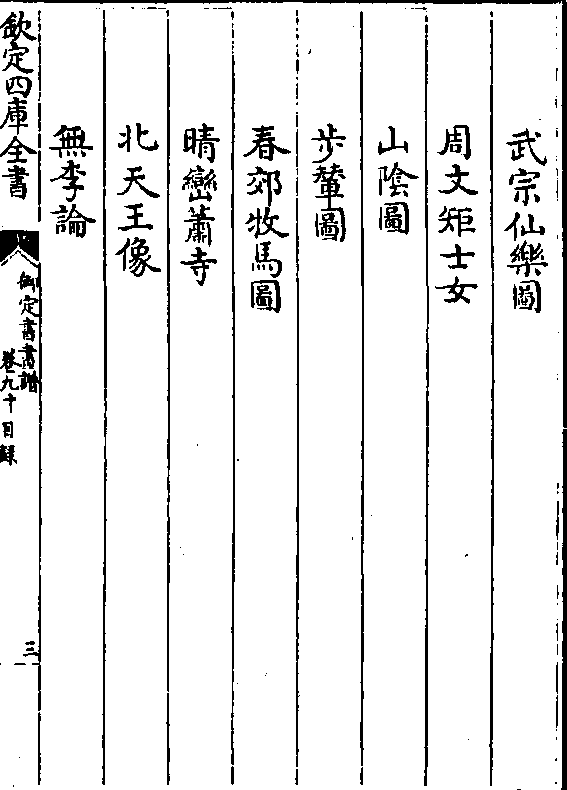 武宗仙樂圖
周文矩士女
山陰圖
步輦圖
春郊牧馬圖
晴巒蕭寺
北天王像
無李論
欽定四庫全書
御定書畫譜
卷九十目錄
三